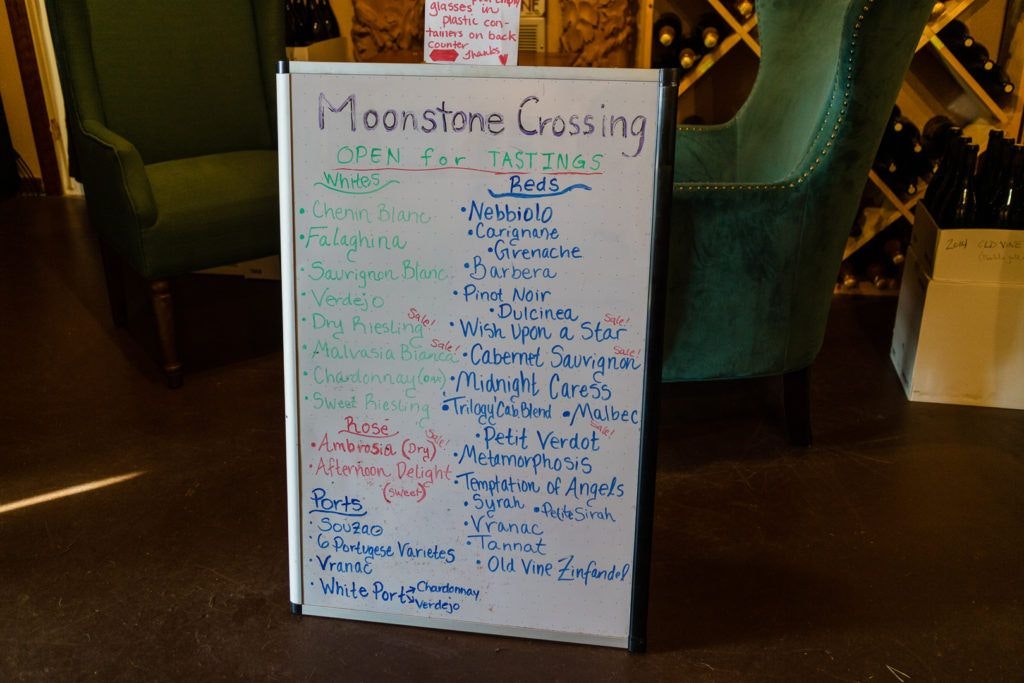 glasses in
plastic con-
tainers on back
counter
Thanks
Moonstone Crossing
OPEN for TASTINGS
Whites
• Chenin Blanc
• Falaghina
• Sauvignon Blanc
• Verdejo
• Dry Riesling Sale!
• Malvasia Bianca Sale!
• Chardonnay (oak)
• Sweet Riesling
Rosé
• Ambrosia (Dry) Sale!
• Afternoon Delight
(sweet)
Ports
• Souzao
• 6 Portugese Varietes
• Vranac
• White Port → Chardonnay
↘ Verdejo
Reds
• Nebbiolo
• Carignane
• Grenache
• Barbera
• Pinot Noir
• Dulcinea
• Wish Upon a Star Sale!
• Cabernet Sauvignon Sale!
• Midnight Caress
• Trilogy Cab Blend • Malbec
• Petit Verdot Sale!
• Metamorphosis
• Temptation of Angels
• Syrah • Petite Sirah
• Vranac
• Tannat
• Old Vine Zinfandel
2014 OLD VINE